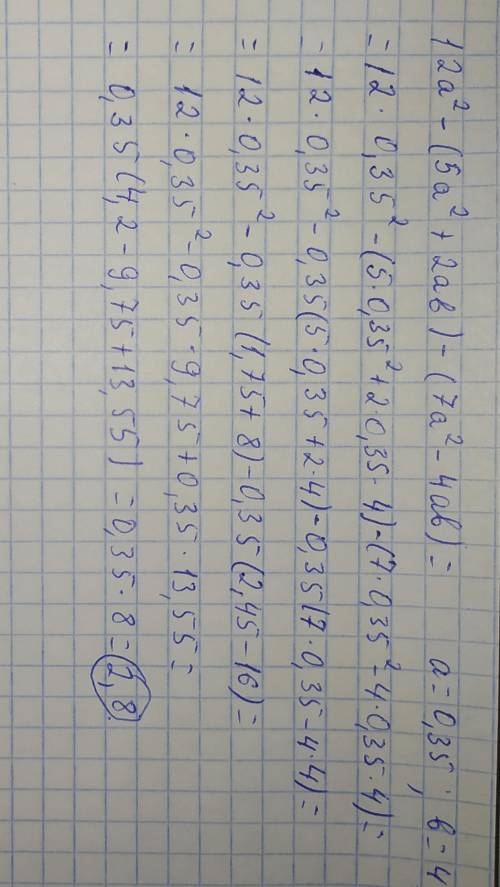 12a² - (5a² + 2ab) - (7a² - 4ab) = a = 0,35; b = 4
= 12 · 0,35² - (5 · 0,35² + 2 · 0,35 · 4) - (7 · 0,35² - 4 · 0,35 · 4) =
= 12 · 0,35² - 0,35(5 · 0,35 + 2 · 4) - 0,35(7 · 0,35 - 4 · 4) =
= 12 · 0,35² - 0,35(1,75 + 8) - 0,35(2,45 - 16) =
= 12 · 0,35² - 0,35 · 9,75 + 0,35 · 13,55 =
= 0,35(4,2 - 9,75 + 13,55) = 0,35 · 8 = 2,8